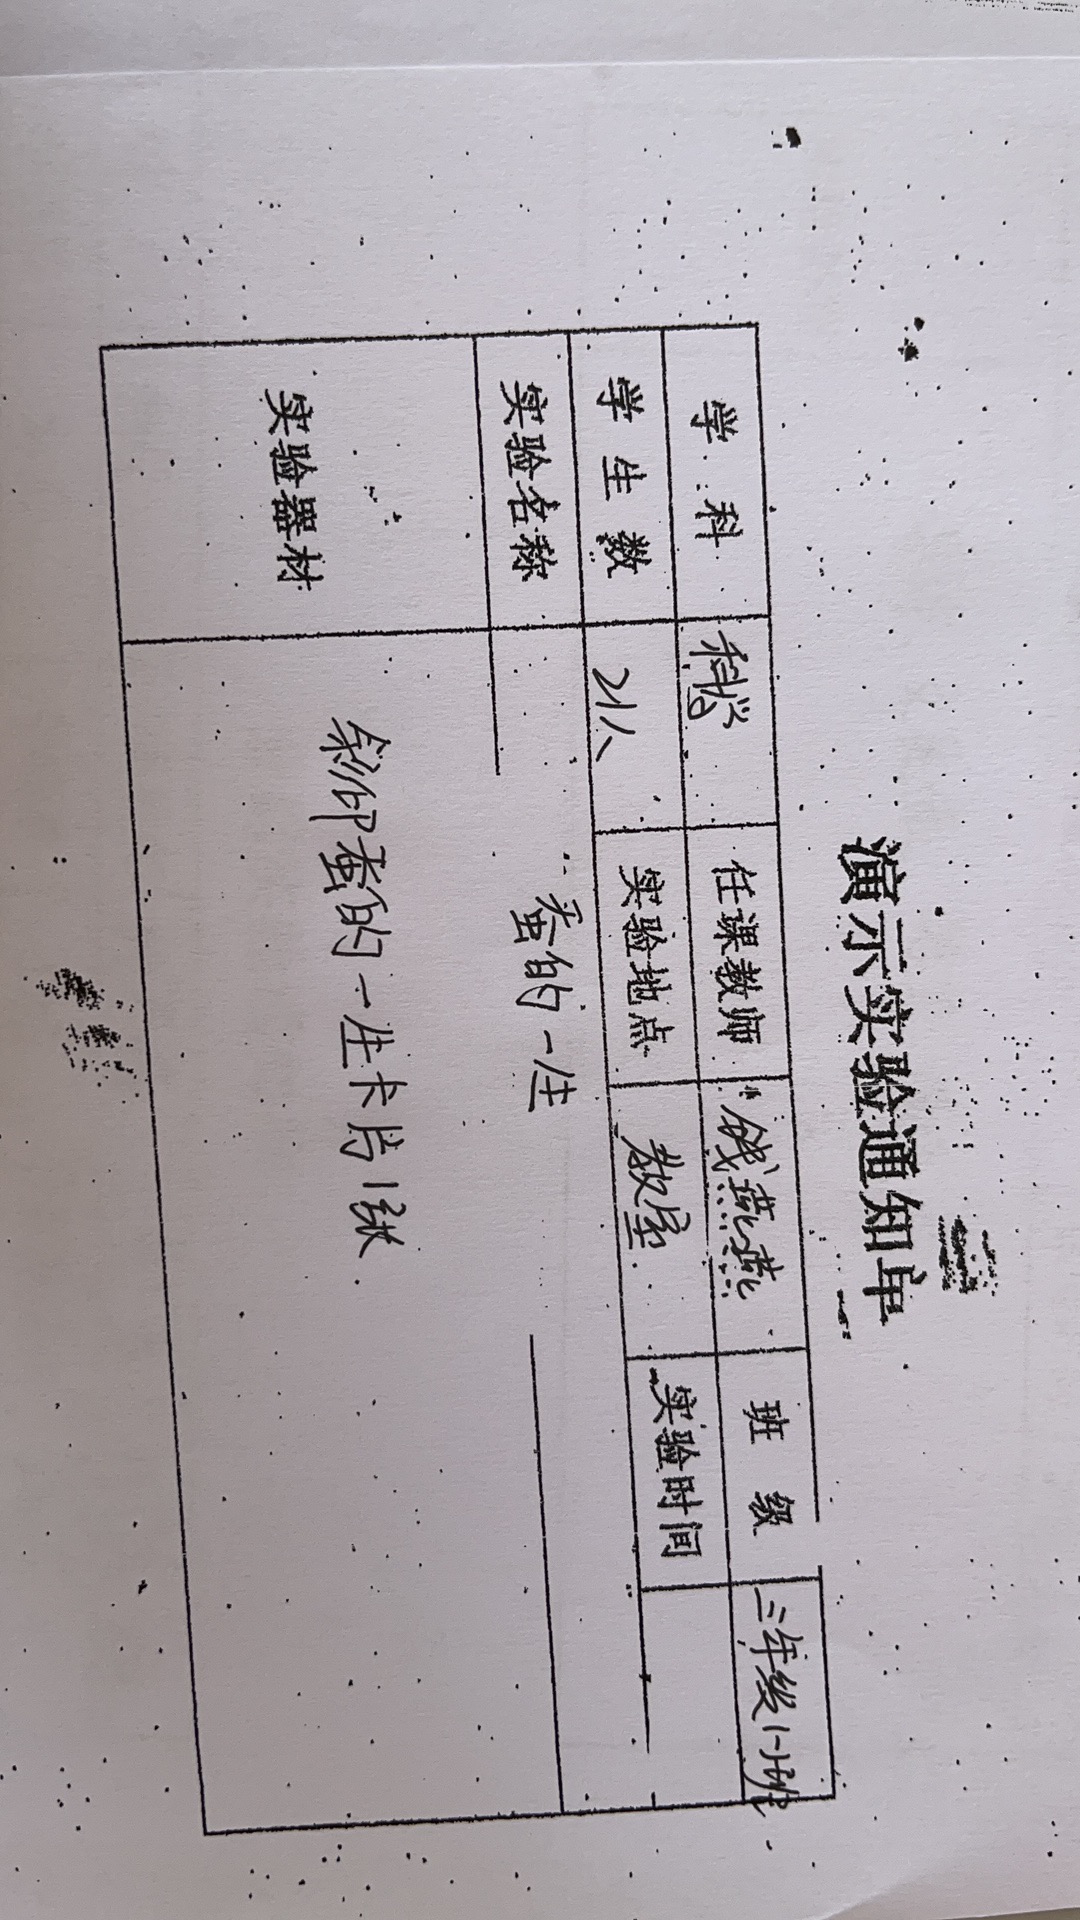 演示实验通知单
学 科 科学 任课教师 钱燕燕 班 级 三年级(一)班
学 生 数 21人 实验地点 教室 实验时间
实验名称 蚕的一生
实验器材 彩印蚕的一生卡片1张.